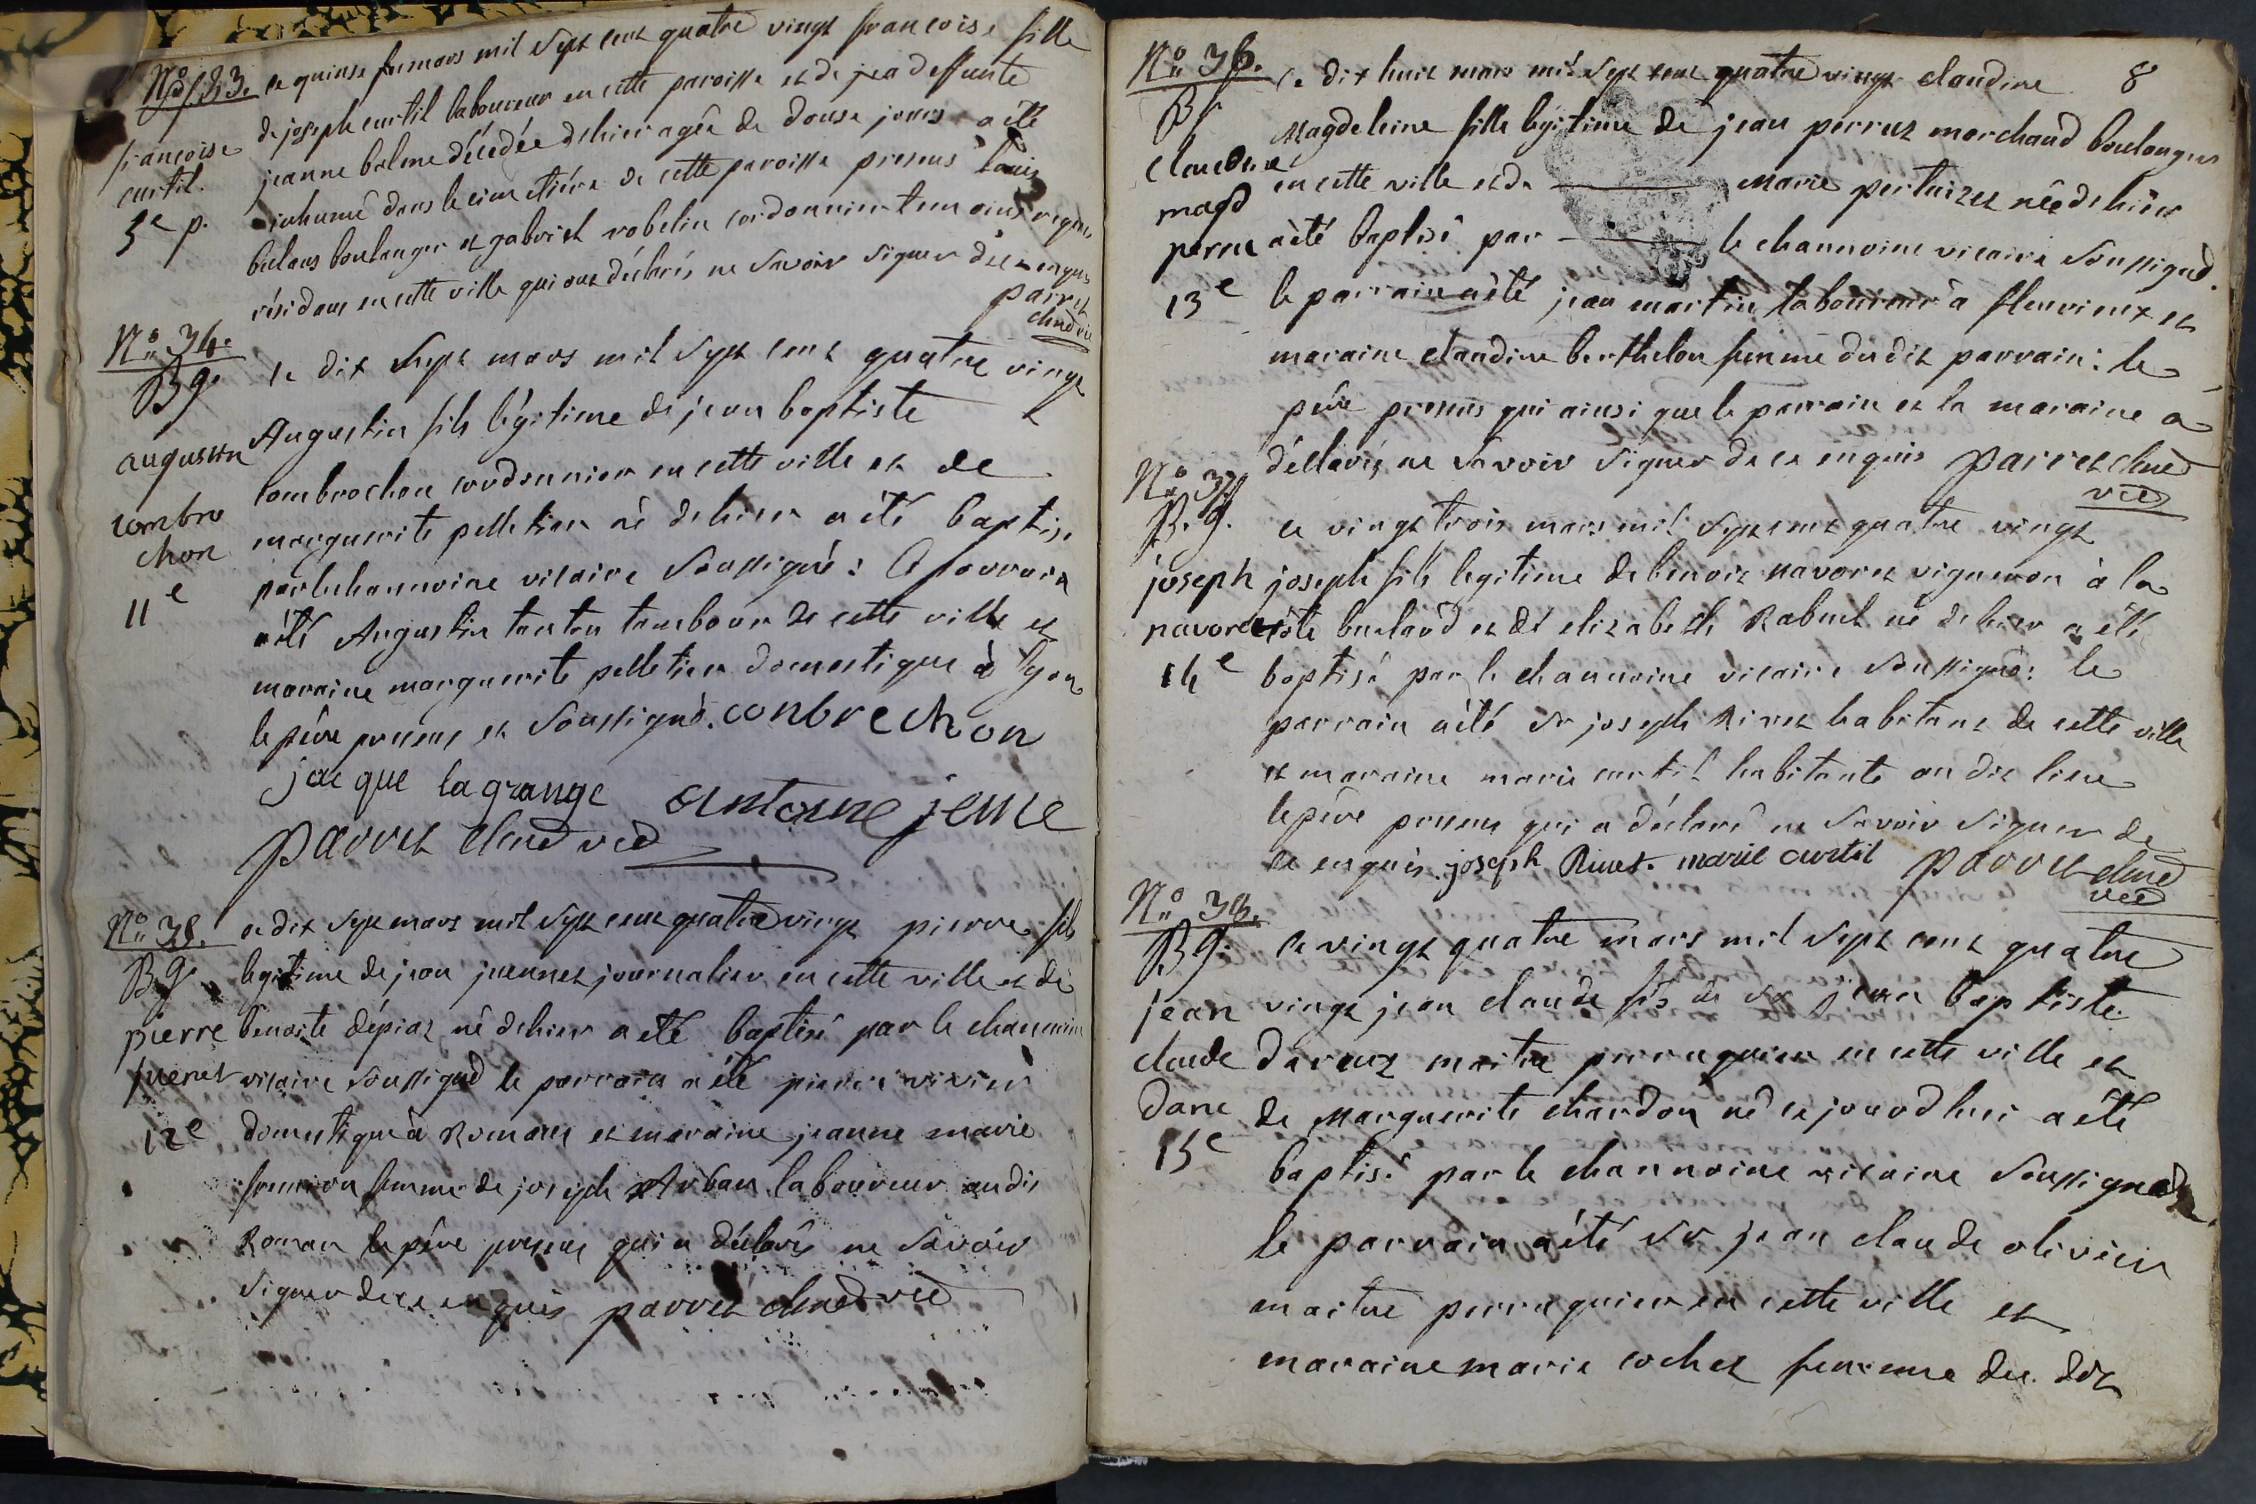 No 33. ce quinse mars mil sept cent quatre vingt francoise fille
de joseph curtil laboureur en cette paroisse et de jea deffunte
francoise curtil. 3e p.
jeanne balme décédée dehier agée de douse jours a été
inhumé dans le cimetiére de cette paroisse presens Louis
bulans boulanger et gabriel robelin cordonnier temoins requis
résidans en cette ville qui ont déclarés ne savoir signer de ce enquis
parret
chne vic
No 34.
B g.
augustin
combrochon
11e
le dix sept mars mil sept cent quatre vingt
Augustin fils légitime de jean baptiste
combrochon cordonnier en cette ville et de
marguerite pelletier né dehier a été baptisé
par le channoine vicaire soussigné : le parrain
a été Augustin tambour de cette ville et
maraine marguerite pelletier domestique à lyon
le pére present et soussigné. conbrechon
jacque lagrange antoine jeune
parret chne vic
No 35.
B g.
pierre
juenet
12e
ce dix sept mars mil sept cent quatre vingt pierre fils
legitime de jean juennet journalier en cette ville et de
benoite dépiat né dehier a été baptisé par le channoine
vicaire soussigné le parrain a été pierre vivier
domestique à Romans et maraine jeanne marie
femme de joseph Arban laboureur audit
Roman le pére present qui a déclaré ne savoir
signer de ce enquis parret chne vic
8
No 36.
B f
claudine
magd
perret
13e
ce dix huit mars mil sept cent quatre vingt claudine
Magdeleine fille légitime de jean perret marchand boulanger
en cette ville et de marie pertuizet née dehier
a été baptisé par le channoine vicaire soussigné.
le parrain a été jean martin laboureur à fleurieux et
maraine claudine berthelon femme dudit parrain : le
pére present qui ainsi que le parrain et la maraine a
déclarés ne savoir signer de ce enquis parret chne
vic
No 37
B. g.
joseph
navoret
14e
ce vingt trois mars mil sept cent quatre vingt
joseph fils legitime de benoit navoret vigneron à la
côte burlard et de elizabeth Rabuel né dehier a été
baptisé par le channoine vicaire soussigné : le
parrain a été sr joseph Rivet habitant de cette ville
et maraine marie curtil habitante au dit lieu
le pére present qui a déclaré ne savoir signer de
ce enquis. joseph Rivet. marie curtil parret chne
vic
No 38.
B g.
jean
claude
dare
15e
ce vingt quatre mars mil sept cent quatre
vingt jean claude fils de sr jean baptiste
maitre perruquier en cette ville et
de Marguerite chardon né ce jourdhui a été
baptisé par le channoine vicaire soussigné
le parrain a été sr jean claude olivier
maitre perruquier en cette ville et
maraine marie cochet femme du dit